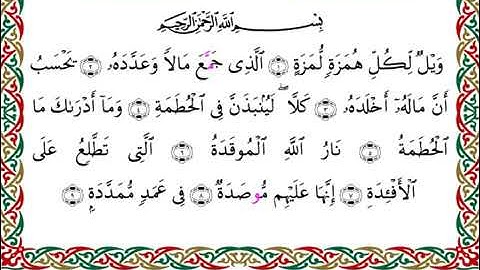 بِسْمِ ٱللَّهِ ٱلرَّحْمَٰنِ ٱلرَّحِيمِ
وَيْلٌ لِّكُلِّ هُمَزَةٍ لُّمَزَةٍ ١ ٱلَّذِى جَمَّعَ مَالًا وَعَدَّدَهُۥ ٢ يَحْسَبُ
أَنَّ مَالَهُۥٓ أَخْلَدَهُۥ ٣ كَلَّا ۖ لَيُنۢبَذَنَّ فِى ٱلْحُطَمَةِ ٤ وَمَآ أَدْرَىٰكَ مَا
ٱلْحُطَمَةُ ٥ نَارُ ٱللَّهِ ٱلْمُوقَدَةُ ٦ ٱلَّتِى تَطَّلِعُ عَلَى
ٱلْأَفْـِٔدَةِ ٧ إِنَّهَا عَلَيْهِم مُّوصَدَةٌ ٨ فِى عَمَدٍ مُّمَدَّدَةٍۭ ٩